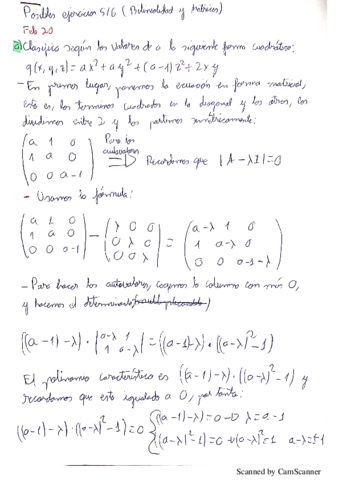 Posibles ejercicios 5/6 (Bilinealidad y Métricas)
Feb 20
a) Clasifica según los valores de a la siguiente forma cuadrática:
q(x, y, z) = ax² + ay² + (a-1)z² + 2xy
- En primer lugar, ponemos la ecuación en forma matricial,
esto es, los términos cuadrados en la diagonal y los otros, los
dividimos entre 2 y los partimos simétricamente:
(a 1 0) Para los
(1 a 0) autovalores ⟹ Recordamos que |A - λI| = 0
(0 0 a-1)
- Usamos la fórmula:
(a 1 0) (λ 0 0) (a-λ 1 0)
(1 a 0) - (0 λ 0) = (1 a-λ 0)
(0 0 a-1) (0 0 λ) (0 0 a-1-λ)
- Para hacer los autovalores, cogemos la columna con más 0,
y hacemos el determinante
((a-1)-λ) · |a-λ 1| = ((a-1)-λ) · ((a-λ)² - 1)
|1 a-λ|
El polinomio característico es ((a-1)-λ) · ((a-λ)² - 1) y
recordamos que está igualado a 0, por tanto:
((a-1)-λ) · ((a-λ)² - 1) = 0 { (a-1)-λ = 0 → λ = a-1
((a-λ)² - 1) = 0 → (a-λ)² = 1 a-λ = ±1
Scanned by CamScanner